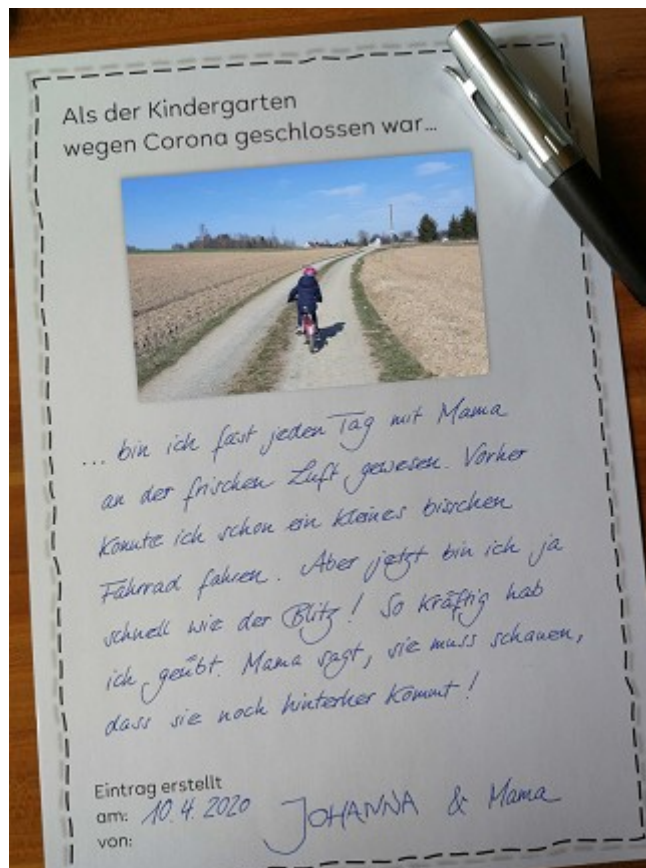 Als der Kindergarten
wegen Corona geschlossen war...
... bin ich fast jeden Tag mit Mama
an der frischen Luft gewesen. Vorher
konnte ich schon ein kleines bisschen
Fahrrad fahren. Aber jetzt bin ich ja
schnell wie der Blitz! So kräftig hab
ich geübt. Mama sagt, sie muss schauen,
dass sie noch hinterher kommt!
Eintrag erstellt
am: 10.4.2020
von: JOHANNA & Mama